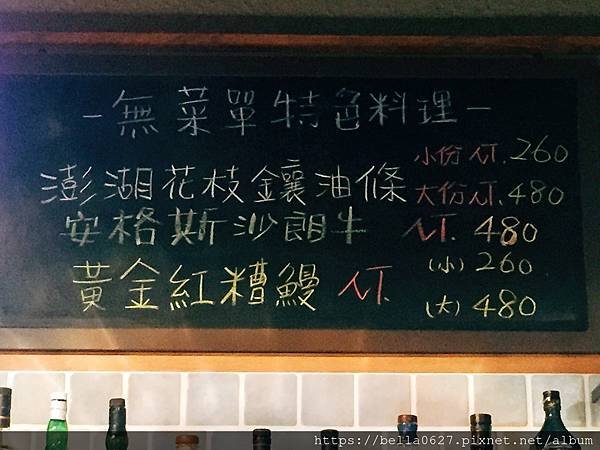 -無菜單特色料理-
澎湖花枝鑲油條 小份 NT. 260
大份 NT. 480
安格斯沙朗牛 NT. 480
黃金紅糟鰻 NT. (小) 260
(大) 480
https://bella0627.pixnet.net/album